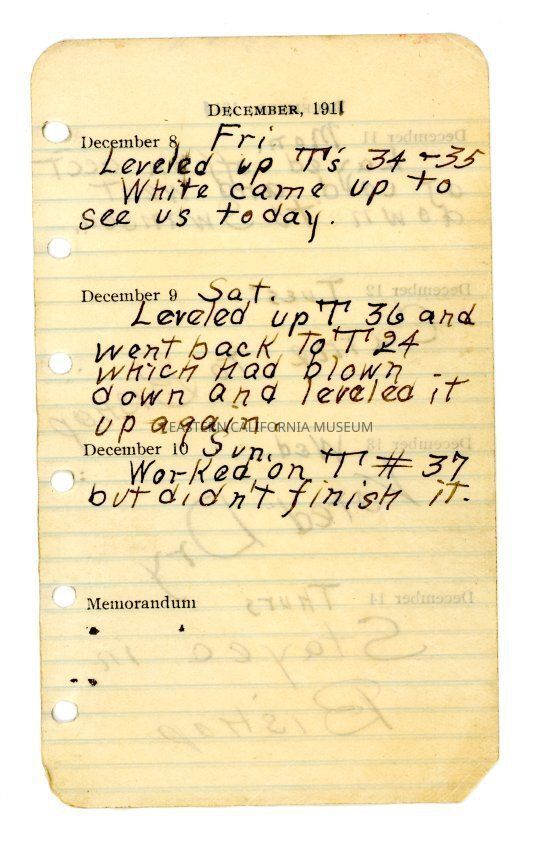 DECEMBER, 1911
December 8 Fri.
Leveled up T's 34 - 35
White came up to
see us today.
December 9 Sat.
Leveled up T 36 and
went back to T 24
which had blown
down and leveled it
up again.
EASTERN CALIFORNIA MUSEUM
December 10 Sun.
Worked on T # 37
but didn't finish it.
Memorandum